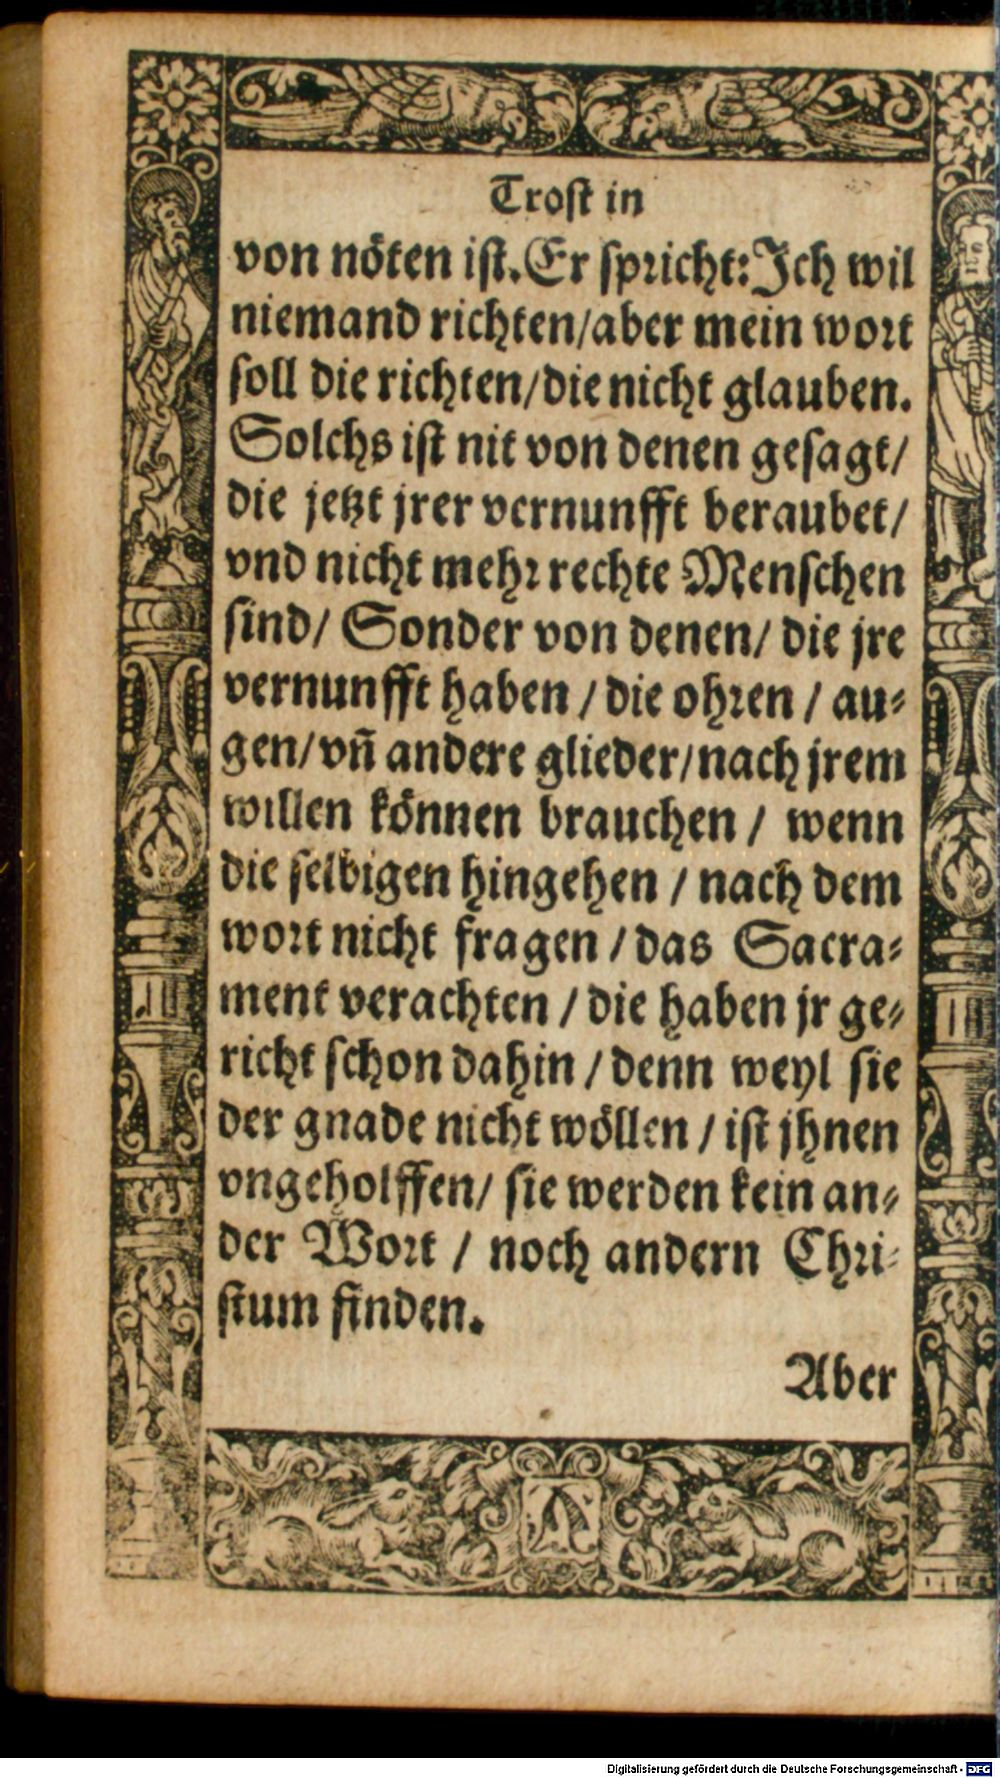 Trost in
von nöten ist. Er spricht: Ich wil
niemand richten/aber mein wort
soll die richten/die nicht glauben.
Solchs ist nit von denen gesagt/
die jetzt jrer vernunfft beraubet/
vnd nicht mehr rechte Menschen
sind/ Sonder von denen/ die jre
vernunfft haben / die ohren / au-
gen/vñ andere glieder/nach jrem
willen können brauchen / wenn
die selbigen hingehen / nach dem
wort nicht fragen / das Sacra-
ment verachten / die haben jr ge-
richt schon dahin / denn weyl sie
der gnade nicht wöllen / ist jhnen
vngeholffen/ sie werden kein an-
der Wort / noch andern Chri-
stum finden.
Aber
Digitalisierung gefördert durch die Deutsche Forschungsgemeinschaft - DFG